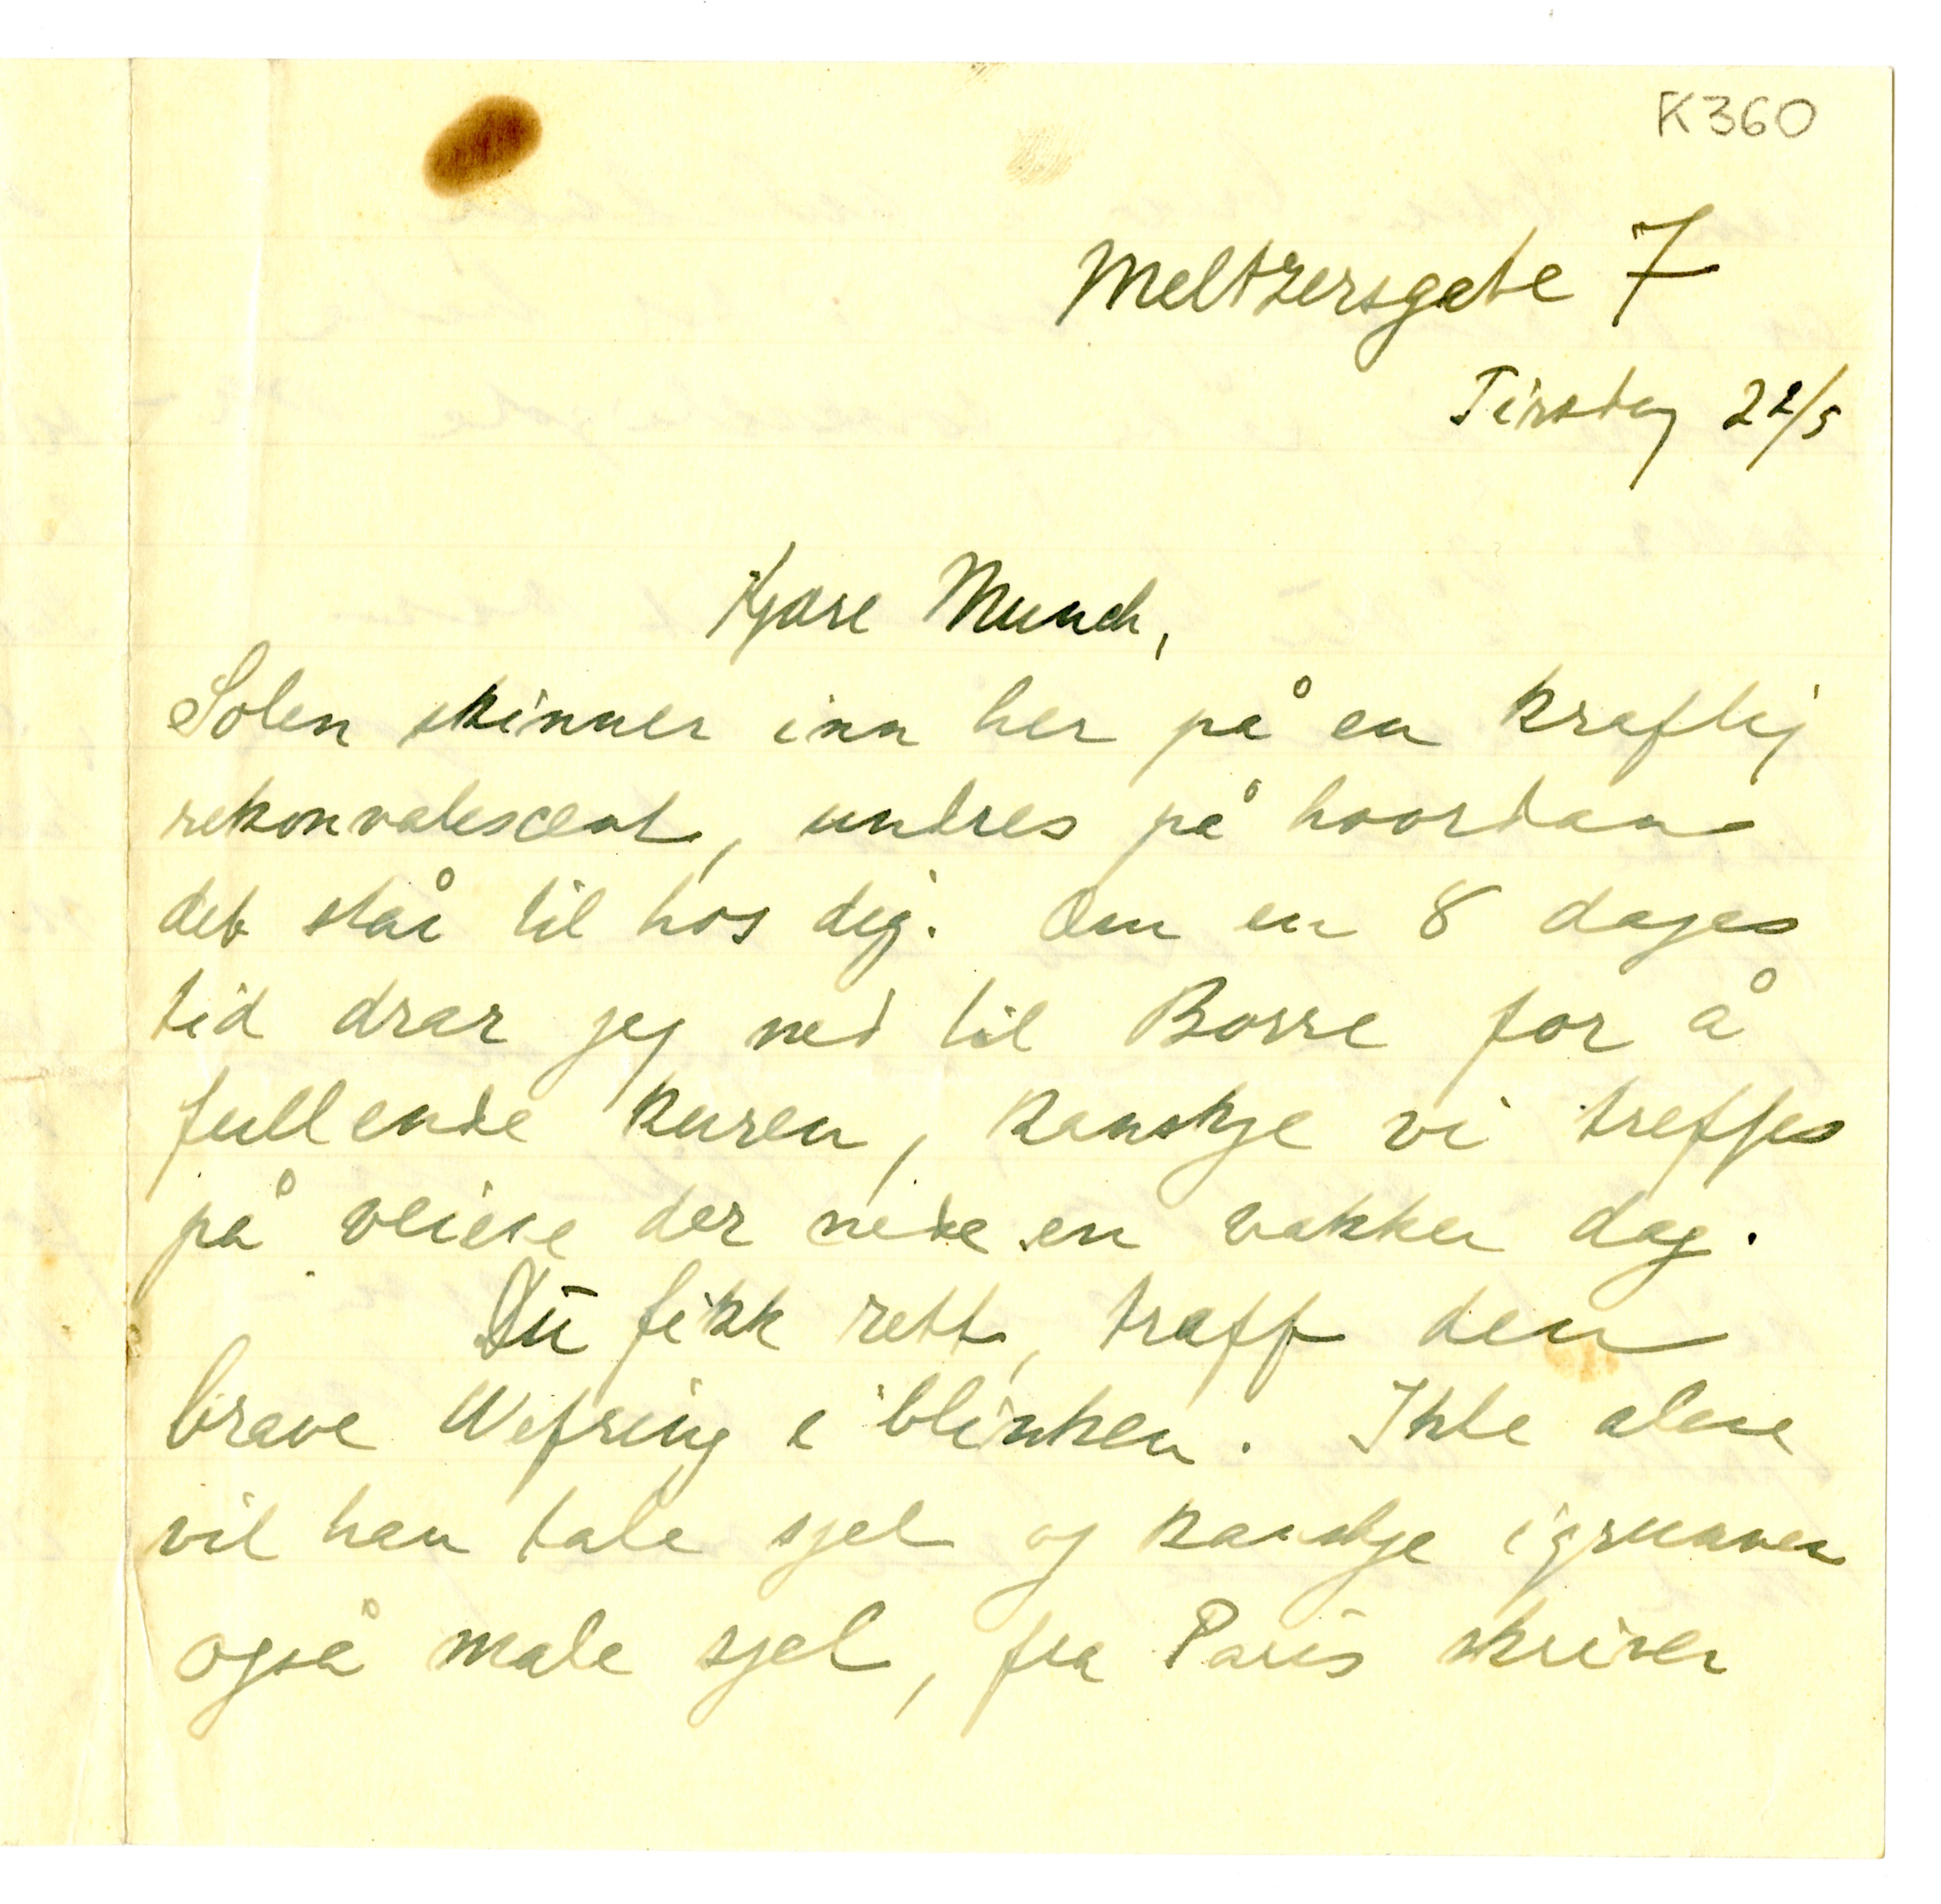 K360
Meltzersgate 7
Tirsdag 22/5
Kjære Munch,
Solen skinner inn her på en kraftig
rekonvalescent, undres på hvordan
det står til hos dig. Om en 8 dages
tid drar jeg ned til Borre for å
fullende kuren, kanskje vi treffes
på veiene der nede en vakker dag.
Du fikk rett, traff den
brave Wefring i blinken. Ikke alene
vil han tale sjel og kanskje i grunnen
også male sjel, fra Paris skriver